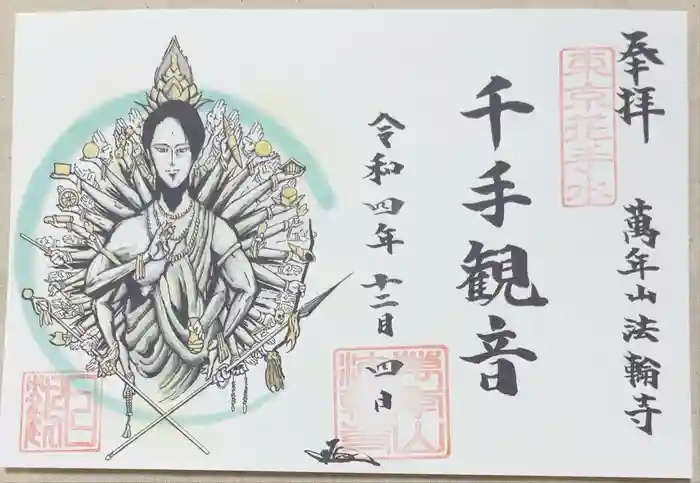 奉拝
萬年山法輪寺
東京花手水
千手観音
令和四年十二月四日
萬年山
法輪寺